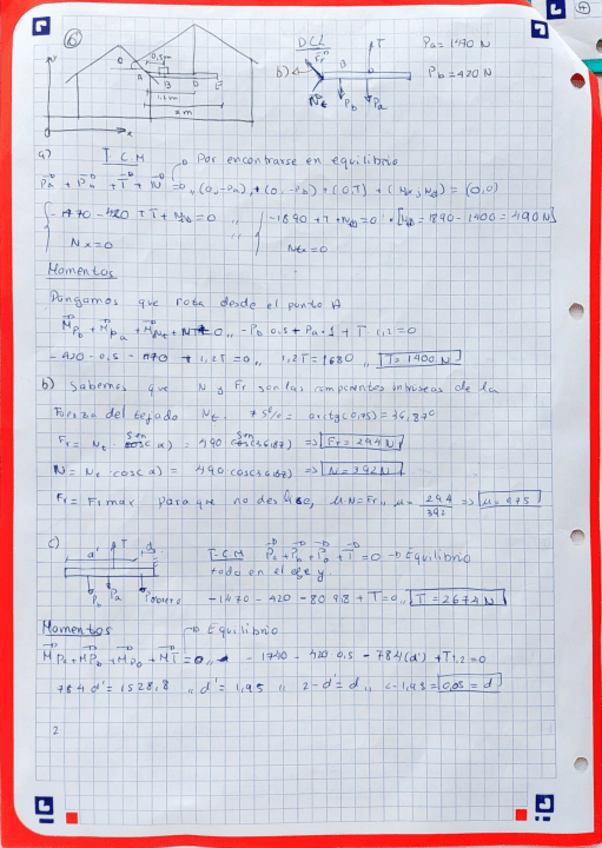 6
DCL
Pa = 1470 N
Pb = 420 N
0,5m
1,2m
2m
Fr
T
B
b)
Nt
Pb
Pa
a) T C M Por encontrarse en equilibrio
Pa + Pb + T + N = 0 ,, (0,-Pa) + (0,-Pb) + (0,T) + (Nx, Ny) = (0,0)
-1470 - 420 + T + Nty = 0 ,, -1890 + T + Nty = 0 · [Nty = 1890 - 1400 = 490 N]
Nx = 0 Ntx = 0
Momentos
Pongamos que rota desde el punto A
MPb + MPa + MNt + MT = 0 ,, -Pb 0,5 + Pa·1 + T·1,2 = 0
-420·0,5 - 1470 + 1,2T = 0 ,, 1,2T = 1680 ,, T = 1400 N
b) Sabemos que N y Fr son las componentes intrínseas de la
Fuerza del tejado Nt. 75% = arctg(0,75) = 36,87º
Fr = Nt · sen(α) = 490 sen(36,87) => Fr = 294 N
N = Nt · cos(α) = 490 cos(36,87) => N = 392 N
Fr = Fr max para que no deslice, μ·N = Fr ,, μ = 294/392 => μ = 0,75
c)
d'
T
d
Pb
Pa
Pobrero
T·C·M Pa + Pb + Po + T = 0 -> Equilibrio
todo en el eje y.
-1470 - 420 - 80·9,8 + T = 0 ,, T = 2674 N
Momentos Equilibrio
MPa + MPb + MPo + MT = 0 ,, - 1740 - 420·0,5 - 784(d') + T1,2 = 0
784 d' = 1528,8 ,, d' = 1,95 ,, 2 - d' = d ,, 2 - 1,95 = 0,05 = d
2